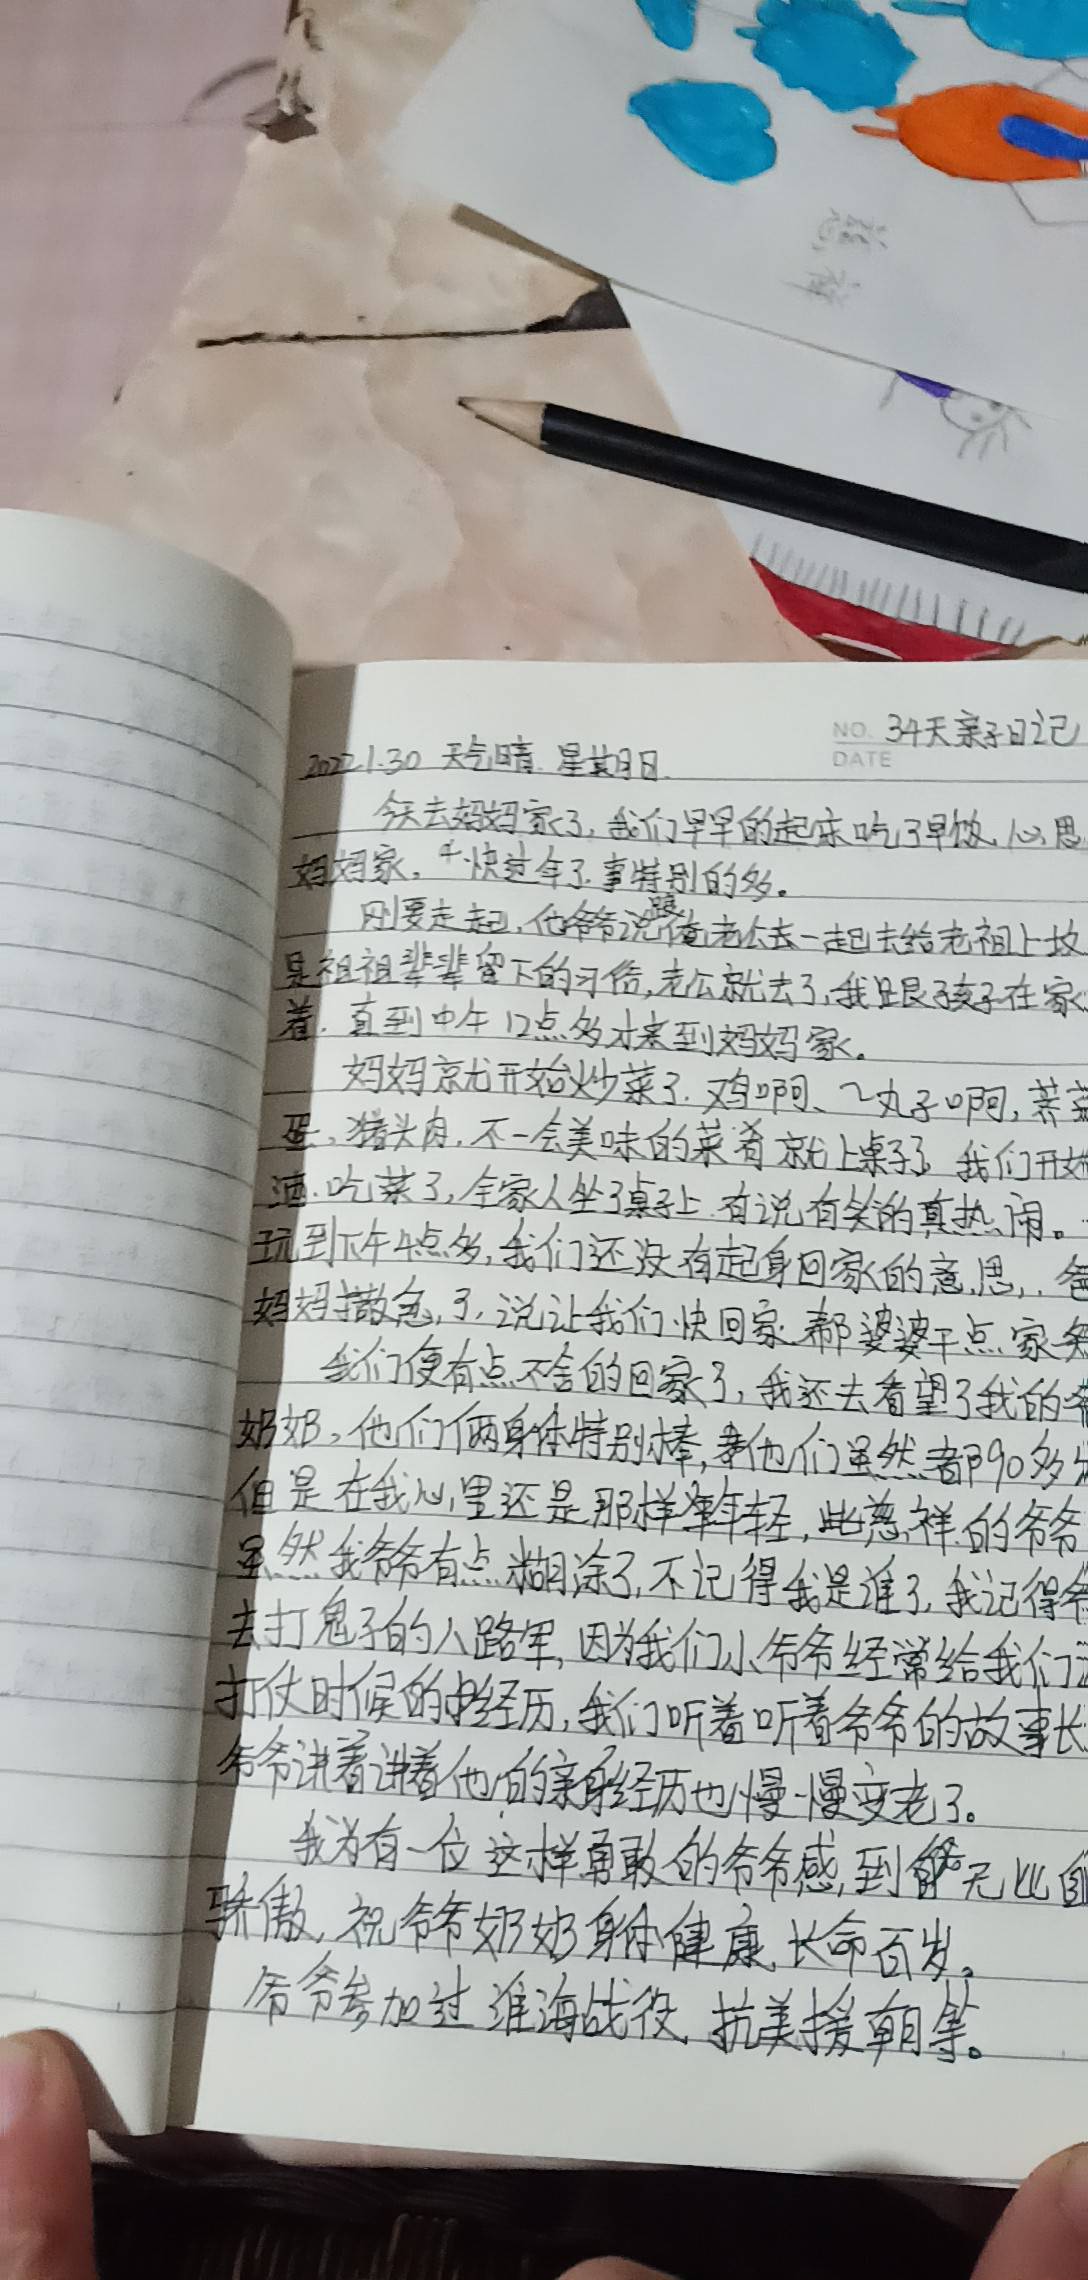 NO. 34天亲子日记
DATE
2022.1.30 天气晴. 星期日.
今天去妈妈家了,我们早早的起床吃了早饭,心思
妈妈家,快过年了.事特别的多。
刚要走起,他爷爷说跟俺老公去一起去给老祖上坟
是祖祖辈辈留下的习俗,老公就去了,我跟孩子在家
着.直到中午12点多才来到妈妈家。
妈妈就开始炒菜了.鸡啊、丸子啊,荠菜
蛋,猪头肉,不一会美味的菜肴就上桌子了.我们开始
酒.吃菜了,全家人坐了桌子上.有说有笑的真热闹。
玩到下午4点多,我们还没有起身回家的意思,.爸
妈妈撒急,了,说让我们快回家.帮婆婆干点家务
我们便有点不舍的回家了,我还去看望了我的爷
奶奶,他们俩身体特别棒,他们虽然都90多岁
但是在我心里还是那样年轻,慈祥的爷爷
虽然我爷爷有点糊涂了,不记得我是谁了,我记得爷
去打鬼子的八路军,因为我们小爷爷经常给我们讲
打仗时候的经历,我们听着听着爷爷的故事长
爷爷讲着讲着他的亲身经历也慢慢变老了。
我为有一位这样勇敢的爷爷感到无比自
骄傲,祝爷爷奶奶身体健康,长命百岁。
爷爷参加过淮海战役,抗美援朝等。